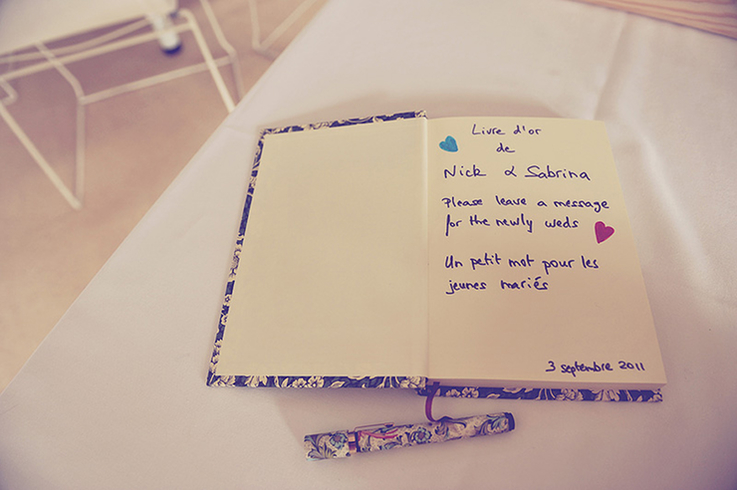 Livre d'or
de
Nick & Sabrina
Please leave a message
for the newly weds
Un petit mot pour les
jeunes mariés
3 septembre 2011